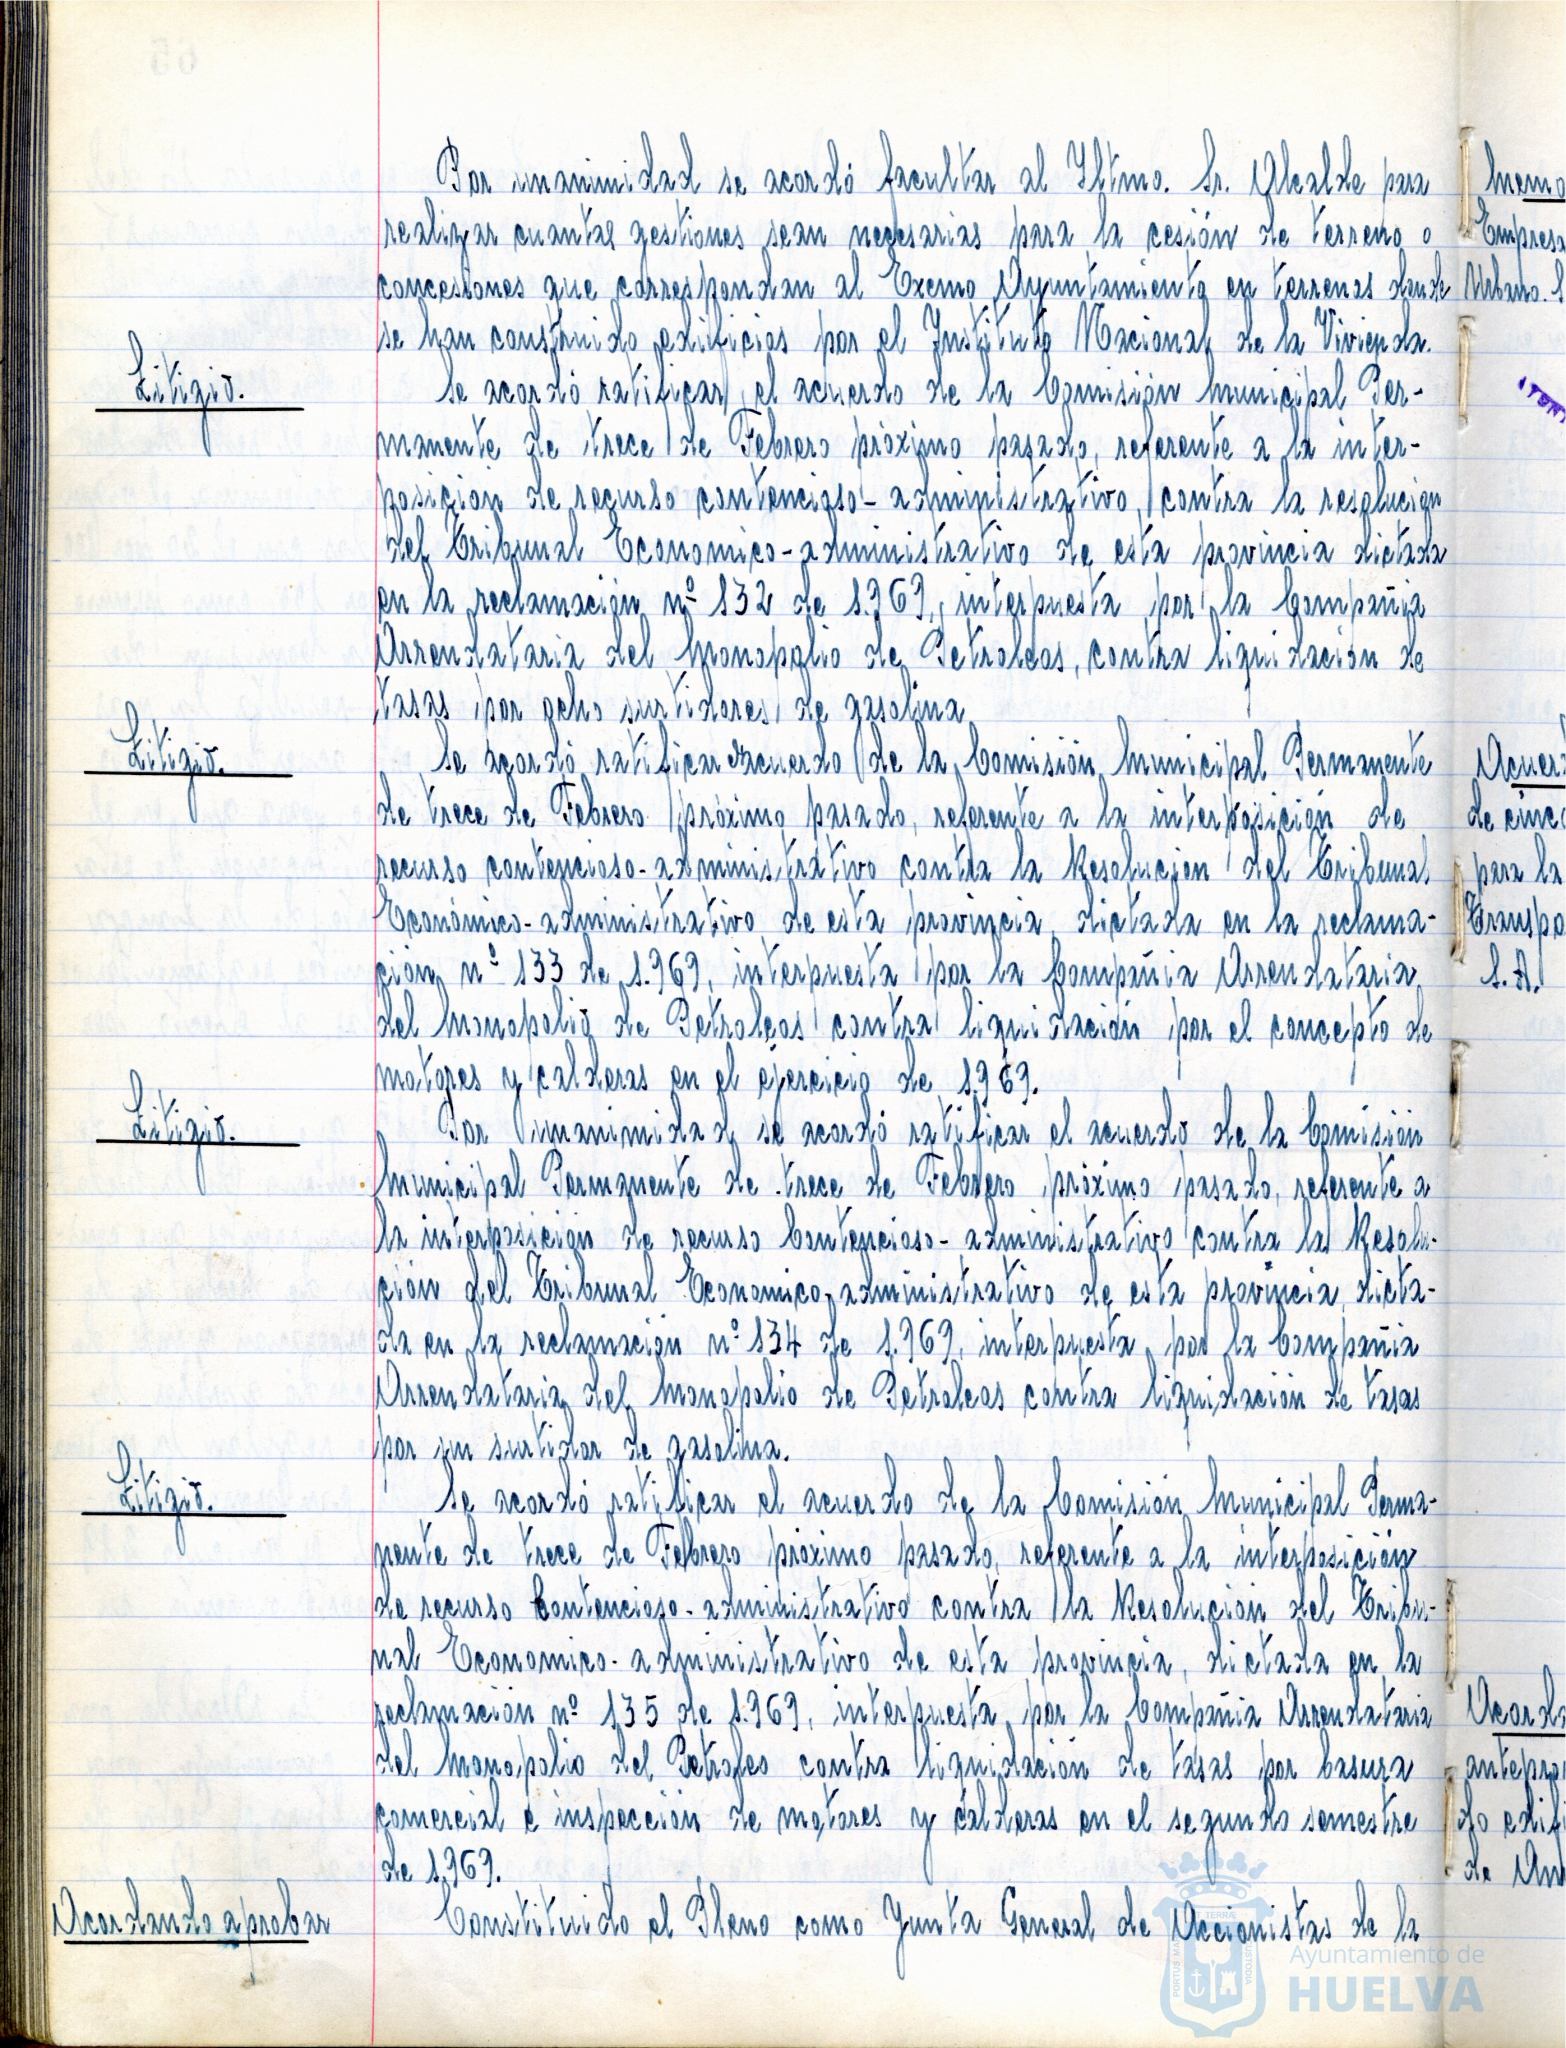 Por unanimidad se acordó facultar al Iltmo. Sr. Alcalde para
realizar cuantas gestiones sean necesarias para la cesión de terreno o
concesiones que correspondan al Excmo Ayuntamiento en terrenos donde
se han construido edificios por el Instituto Nacional de la Vivienda.
Litigio.
Se acordó ratificar el acuerdo de la Comisión Municipal Per-
manente de trece de Febrero próximo pasado, referente a la inter-
posición de recurso contencioso-administrativo, contra la resolución
del Tribunal Economico-administrativo de esta provincia dictada
en la reclamación nº 132 de 1.969, interpuesta por la Compañia
Arrendataria del Monopolio de Petroleos, contra liquidación de
tasas por ocho surtidores de gasolina
Litigio.
Se acordó ratificar acuerdo de la Comisión Municipal Permanente
de trece de Febrero próximo pasado, referente a la interposición de
recurso contencioso-administrativo contra la Resolución del Tribunal
Económico-administrativo de esta provincia, dictada en la reclama-
ción nº 133 de 1.969, interpuesta por la Compañia Arrendataria
del Monopolio de Petroleos contra liquidación por el concepto de
motores y calderas en el ejercicio de 1.969.
Litigio.
Por unanimidad se acordó ratificar el acuerdo de la Comisión
Municipal Permanente de trece de Febrero próximo pasado, referente a
la interposición de recurso Contencioso-administrativo contra la Resolu-
ción del Tribunal Economico-administrativo de esta provincia, dicta-
da en la reclamación nº 134 de 1.969, interpuesta por la Compañia
Arrendataria del Monopolio de Petroleos contra liquidación de tasas
por un surtidor de gasolina.
Litigio.
Se acordó ratificar el acuerdo de la Comisión Municipal Perma-
nente de trece de Febrero próximo pasado, referente a la interposición
de recurso Contencioso-administrativo contra la Resolución del Tribu-
nal Economico-administrativo de esta provincia, dictada en la
reclamación nº 135 de 1.969, interpuesta por la Compañia Arrendataria
del Monopolio del Petroleo contra liquidación de tasas por basura
comercial e inspección de motores y calderas en el segundo semestre
de 1.969.
Acordando aprobar
Constituido el Pleno como Junta General de Accionistas de la
Memo
Empresa
Urbano. S
Acuer
de cinc
para la
Transpo
S.A.
Acorda
antepro
do edifi
de
Ayuntamiento de
HUELVA